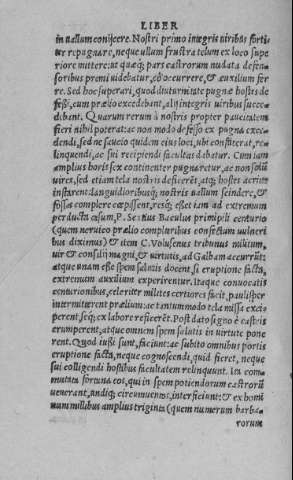 LIBER
in uallum conijcere. Nostri primo integris uiribus forti
ter repugnare, neque ullum frustra telum ex loco supe
riore mittere: ut quæq; pars castrorum nudata defen=
soribus premi uidebatur, eò occurrere, & auxilium fer
re. Sed hoc superari, quod diuturnitate pugnæ hostes de
feßi, cum prælio excedebant, alij integris uiribus succe=
debant. Quarum rerum à nostris propter paucitatem
fieri nihil poterat: ac non modo defesso ex pugna exce=
dendi, sed ne saucio quidem eius loci, ubi constiterat, re=
linquendi, ac sui recipiendi facultas dabatur. Cum iam
amplius horis sex continenter pugnaretur, ac non solum
uires, sed etiam tela nostris deficerēt, atq; hostes acrius
instarent languidioribusq; nostris uallum scindere, &
fossas complere cœpissent, resq; esset iam ad extremum
perducta casum, P. Sextius Baculus primipili centurio
(quem neruico prælio compluribus confectum uulneri
bus diximus) & item C. Volusenus tribunus militum,
uir & consilij magni, & uirtutis, ad Galbam accurrūt:
atque unam esse spem salutis docent, si eruptione facta,
extremum auxilium experirentur. Itaque conuocatis
centurionibus, celeriter milites certiores facit, paulisper
intermitterent prælium: ac tantummodo tela missa excip
perent, seq; ex labore reficerēt. Post dato signo è castris
erumperent, atque omnem spem salutis in uirtute pone
rent. Quod iußi sunt, faciunt: ac subito omnibus portis
eruptione facta, neque cognoscendi, quid fieret, neque
sui colligendi hostibus facultatem relinquunt. Ita com=
mutata fortuna eos, qui in spem potiundorum castrorū
uenerant, undiq; circumuentos, interficiunt: & ex homi
num millibus amplius triginta (quem numerum barba=
rorum